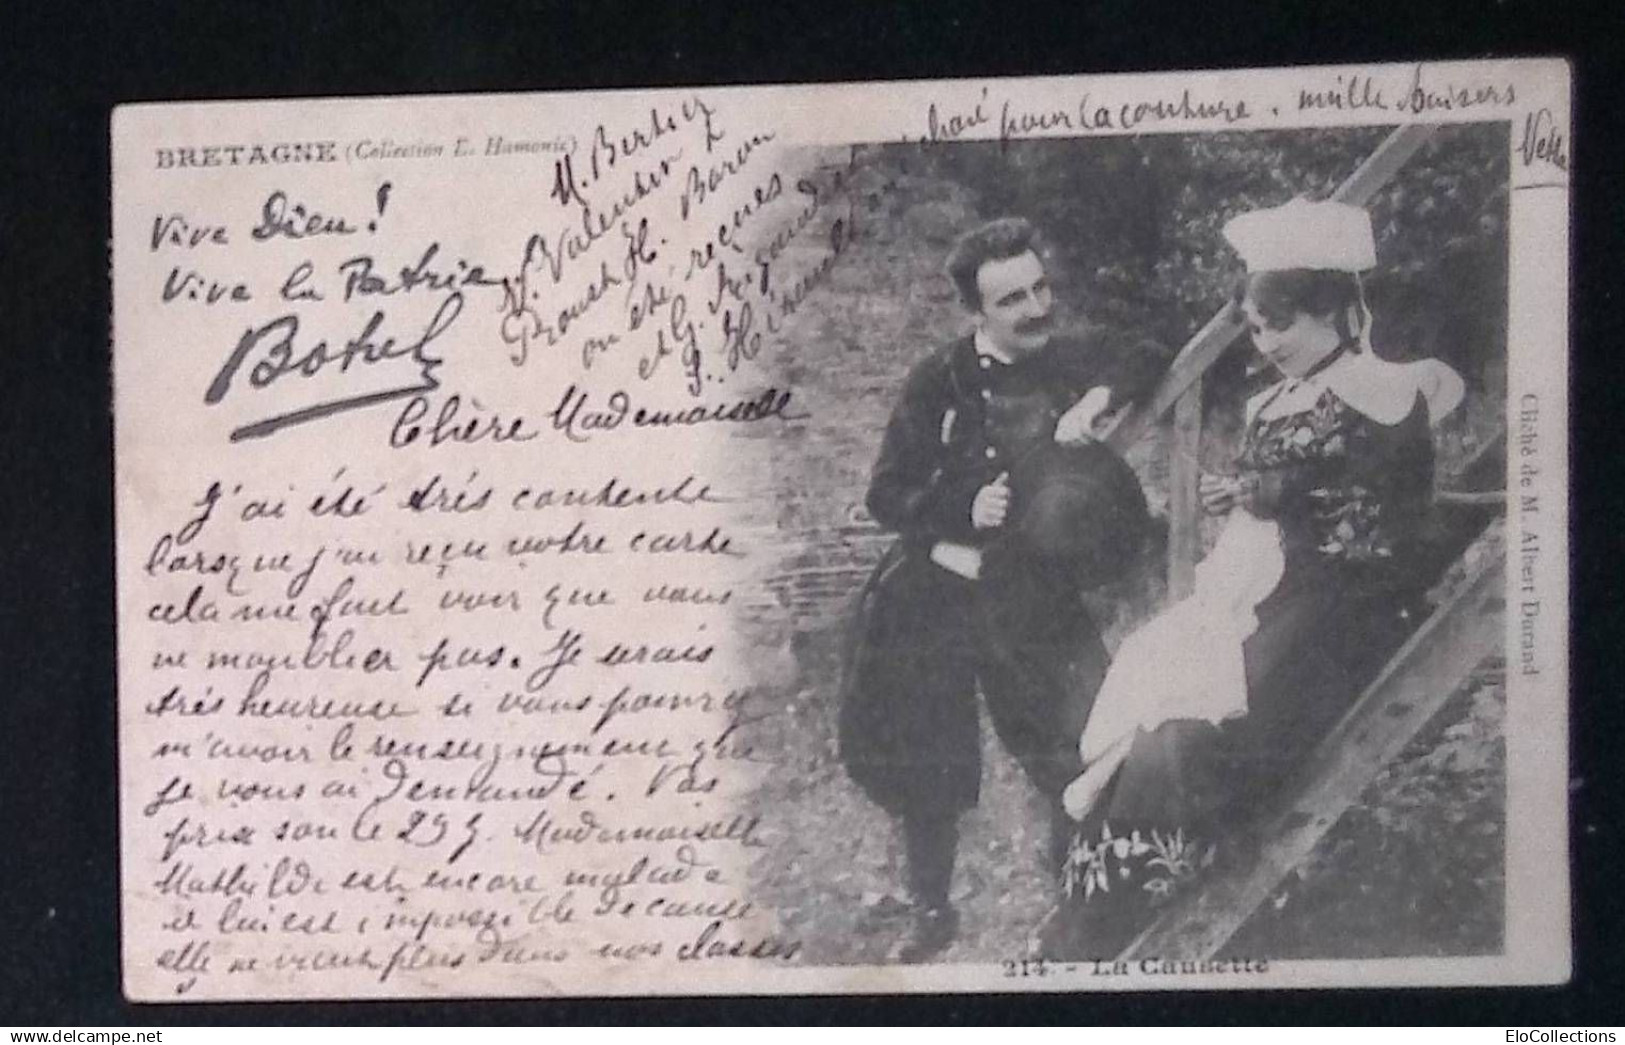 BRETAGNE (Collection E. Hamonic)
Vive Dieu!
Vive la Patrie
Botrel
M. Bertier
Valentin
H. Baron
on été reçues
et G. Rigaud et
S. H
pour la couture. mille baisers
Chère Mademoiselle
J'ai été très contente
lorsque j'ai reçu votre carte
cela me fait voir que vous
ne m'oublier pas. Je serais
très heureuse si vous pouvez
m'avoir le renseignement que
je vous ai demandé. Vos
prix son le 29 J. Mademoiselle
Mathilde est encore malade
et lui est impossible de cause
elle ne vient plus dans nos classes
Cliché de M. Albert Durand
214. - La Causette
EloCollections